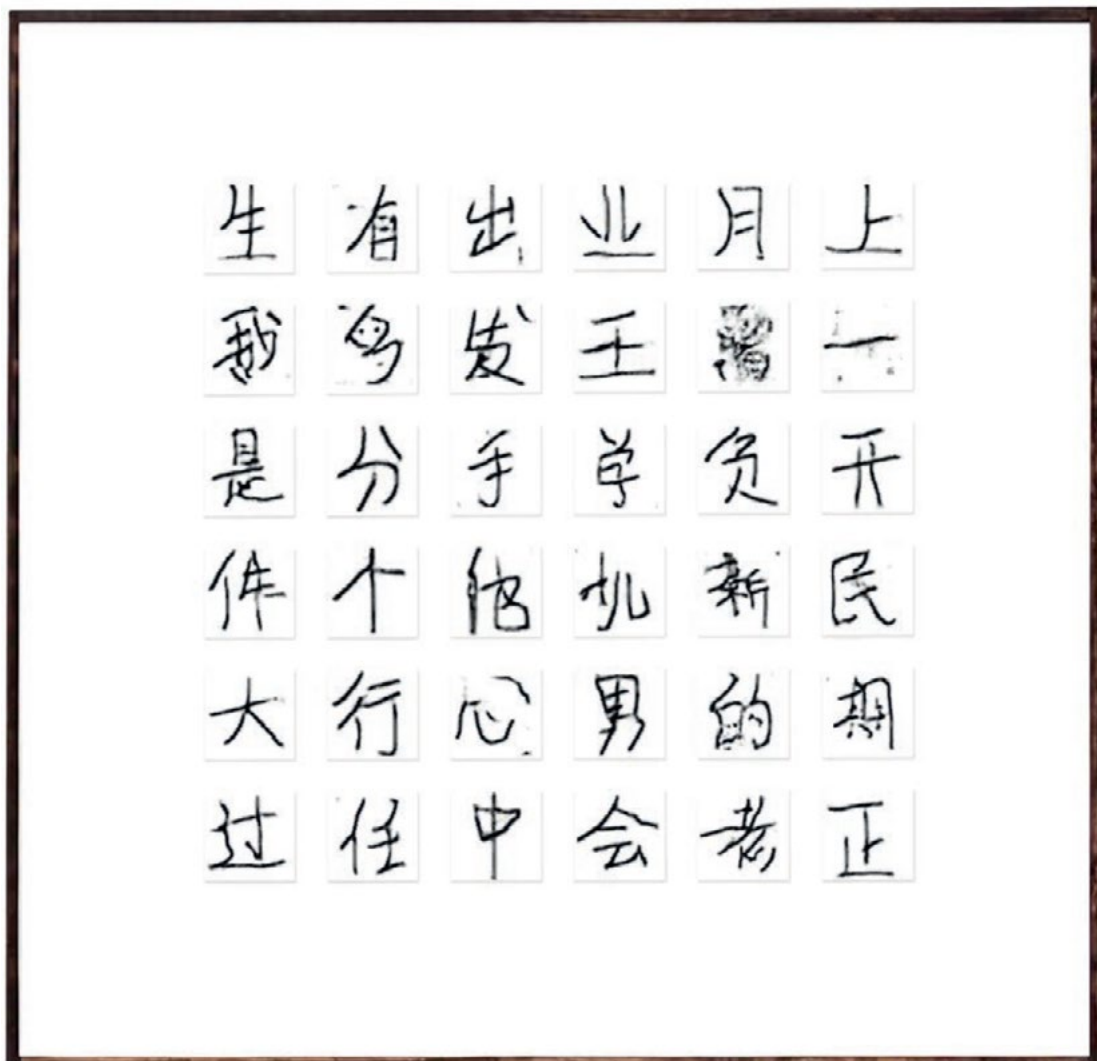 生 有 出 业 月 上
我 发 王 一
是 分 手 学 负 开
件 个 他 机 新 民
大 行 心 男 的 期
过 任 中 会 者 正